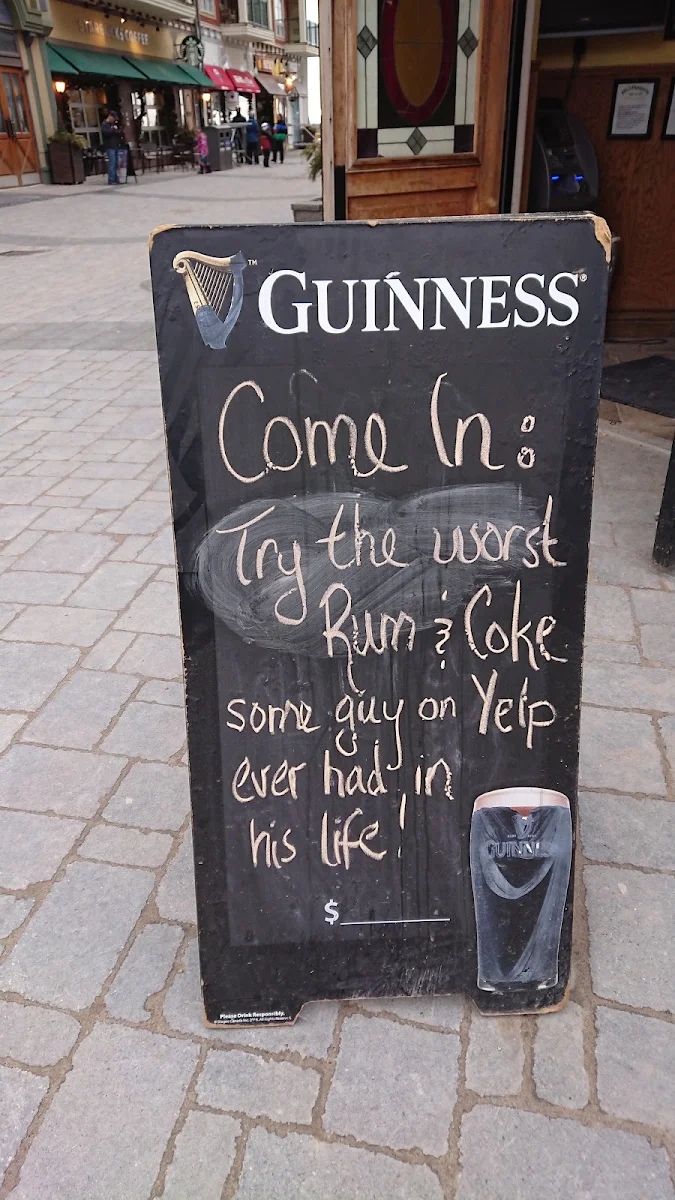 STARBUCKS COFFEE
GUINNESS
Come In:
Try the worst
Rum & Coke
some guy on Yelp
ever had in
his life!
GUINNESS
$
Please Drink Responsibly.